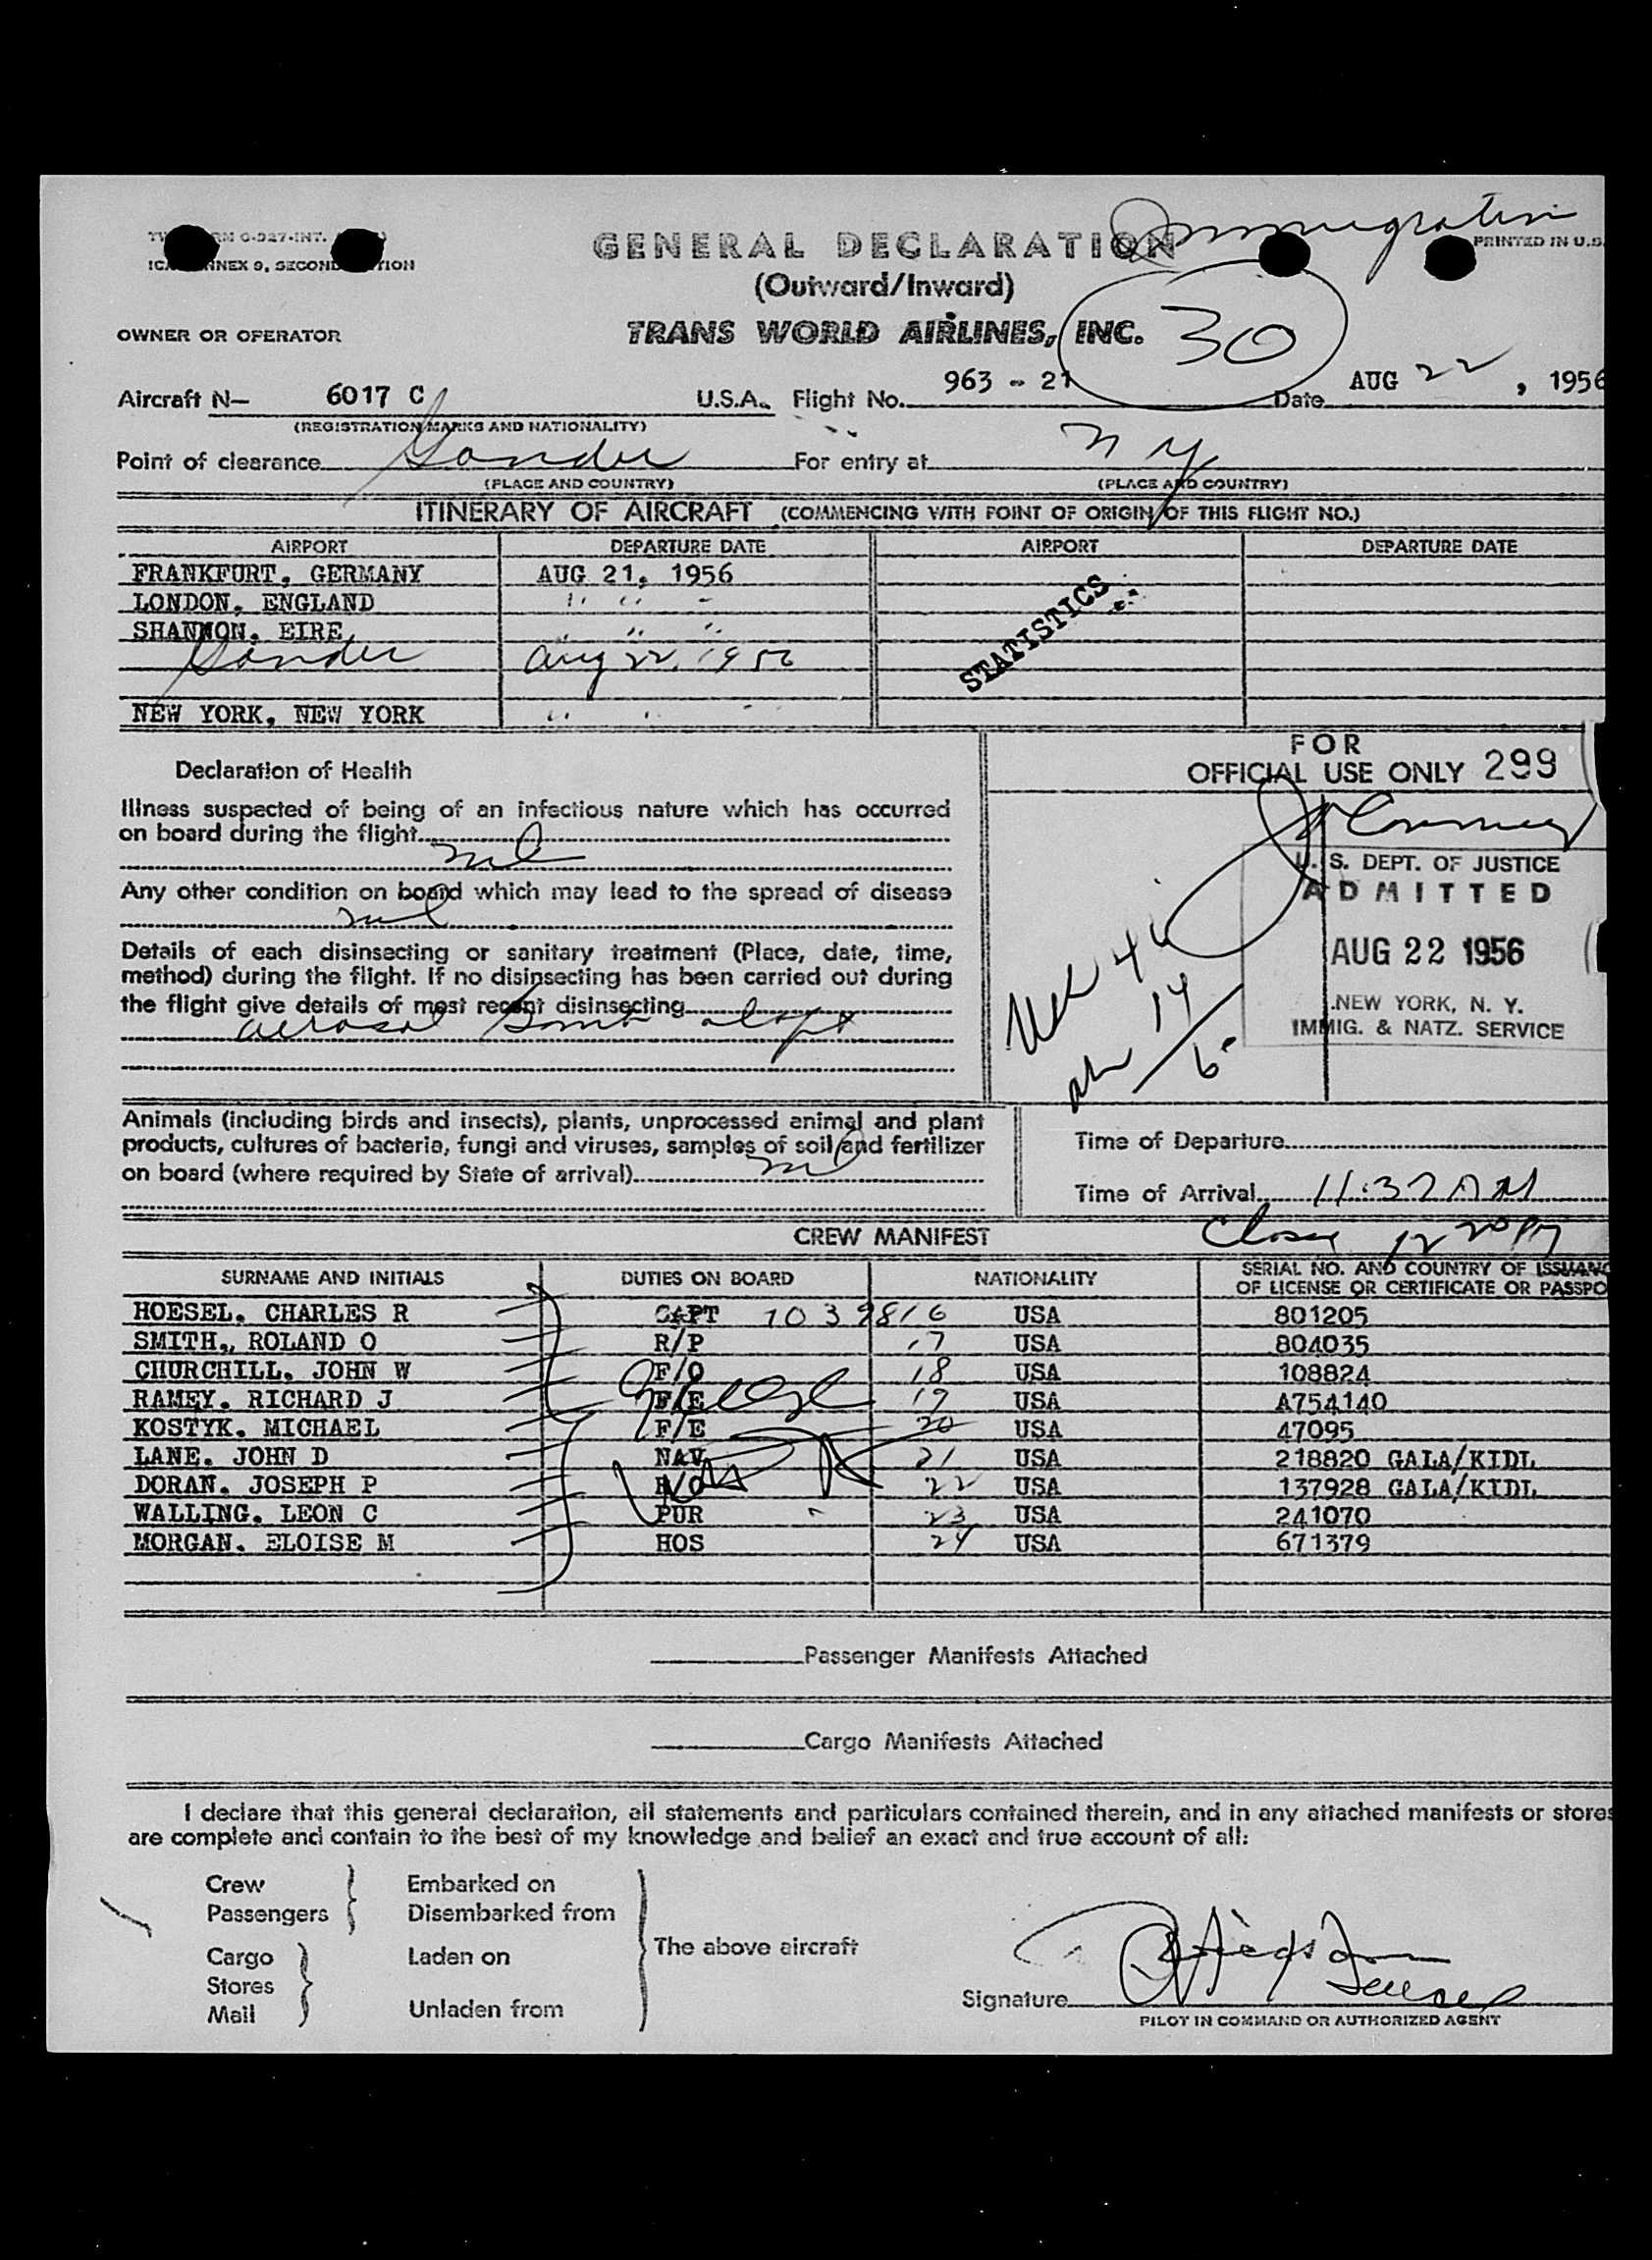 Immigration
GENERAL DECLARATION
PRINTED IN U.S.
(Outward/Inward)
OWNER OR OPERATOR
TRANS WORLD AIRLINES, INC.
30
Aircraft N— 6017 C U.S.A. Flight No. 963 - 21 Date AUG 22, 1956
(REGISTRATION MARKS AND NATIONALITY)
Point of clearance Gander For entry at N Y
(PLACE AND COUNTRY) (PLACE AND COUNTRY)
ITINERARY OF AIRCRAFT (COMMENCING WITH POINT OF ORIGIN OF THIS FLIGHT NO.)
AIRPORT DEPARTURE DATE AIRPORT DEPARTURE DATE
FRANKFURT, GERMANY AUG 21, 1956
LONDON, ENGLAND " " "
SHANNON, EIRE " " "
Gander Aug 22, 1956
STATISTICS
NEW YORK, NEW YORK " " "
FOR
OFFICIAL USE ONLY 299
Declaration of Health
Illness suspected of being of an infectious nature which has occurred
on board during the flight
nil
Any other condition on board which may lead to the spread of disease
nil
Details of each disinsecting or sanitary treatment (Place, date, time,
method) during the flight. If no disinsecting has been carried out during
the flight give details of most recent disinsecting
aerosol bomb
U. S. DEPT. OF JUSTICE
ADMITTED
AUG 22 1956
NEW YORK, N. Y.
IMMIG. & NATZ. SERVICE
14
6
Animals (including birds and insects), plants, unprocessed animal and plant
products, cultures of bacteria, fungi and viruses, samples of soil and fertilizer
on board (where required by State of arrival) nil
Time of Departure
Time of Arrival 11:37 AM
CREW MANIFEST
SURNAME AND INITIALS DUTIES ON BOARD NATIONALITY SERIAL NO. AND COUNTRY OF ISSUANC
OF LICENSE OR CERTIFICATE OR PASSPO
HOESEL, CHARLES R CAPT 1039816 USA 801205
SMITH, ROLAND O R/P 17 USA 804035
CHURCHILL, JOHN W F/O 18 USA 108824
RAMEY, RICHARD J F/E 19 USA A754140
KOSTYK, MICHAEL F/E 20 USA 47095
LANE, JOHN D NAV 21 USA 218820 GALA/KIDL
DORAN, JOSEPH P R/O 22 USA 137928 GALA/KIDL
WALLING, LEON C PUR 23 USA 241070
MORGAN, ELOISE M HOS 24 USA 671379
Passenger Manifests Attached
Cargo Manifests Attached
I declare that this general declaration, all statements and particulars contained therein, and in any attached manifests or stores
are complete and contain to the best of my knowledge and belief an exact and true account of all:
Crew Embarked on
Passengers Disembarked from
The above aircraft
Cargo Laden on
Stores
Mail Unladen from
Signature
PILOT IN COMMAND OR AUTHORIZED AGENT